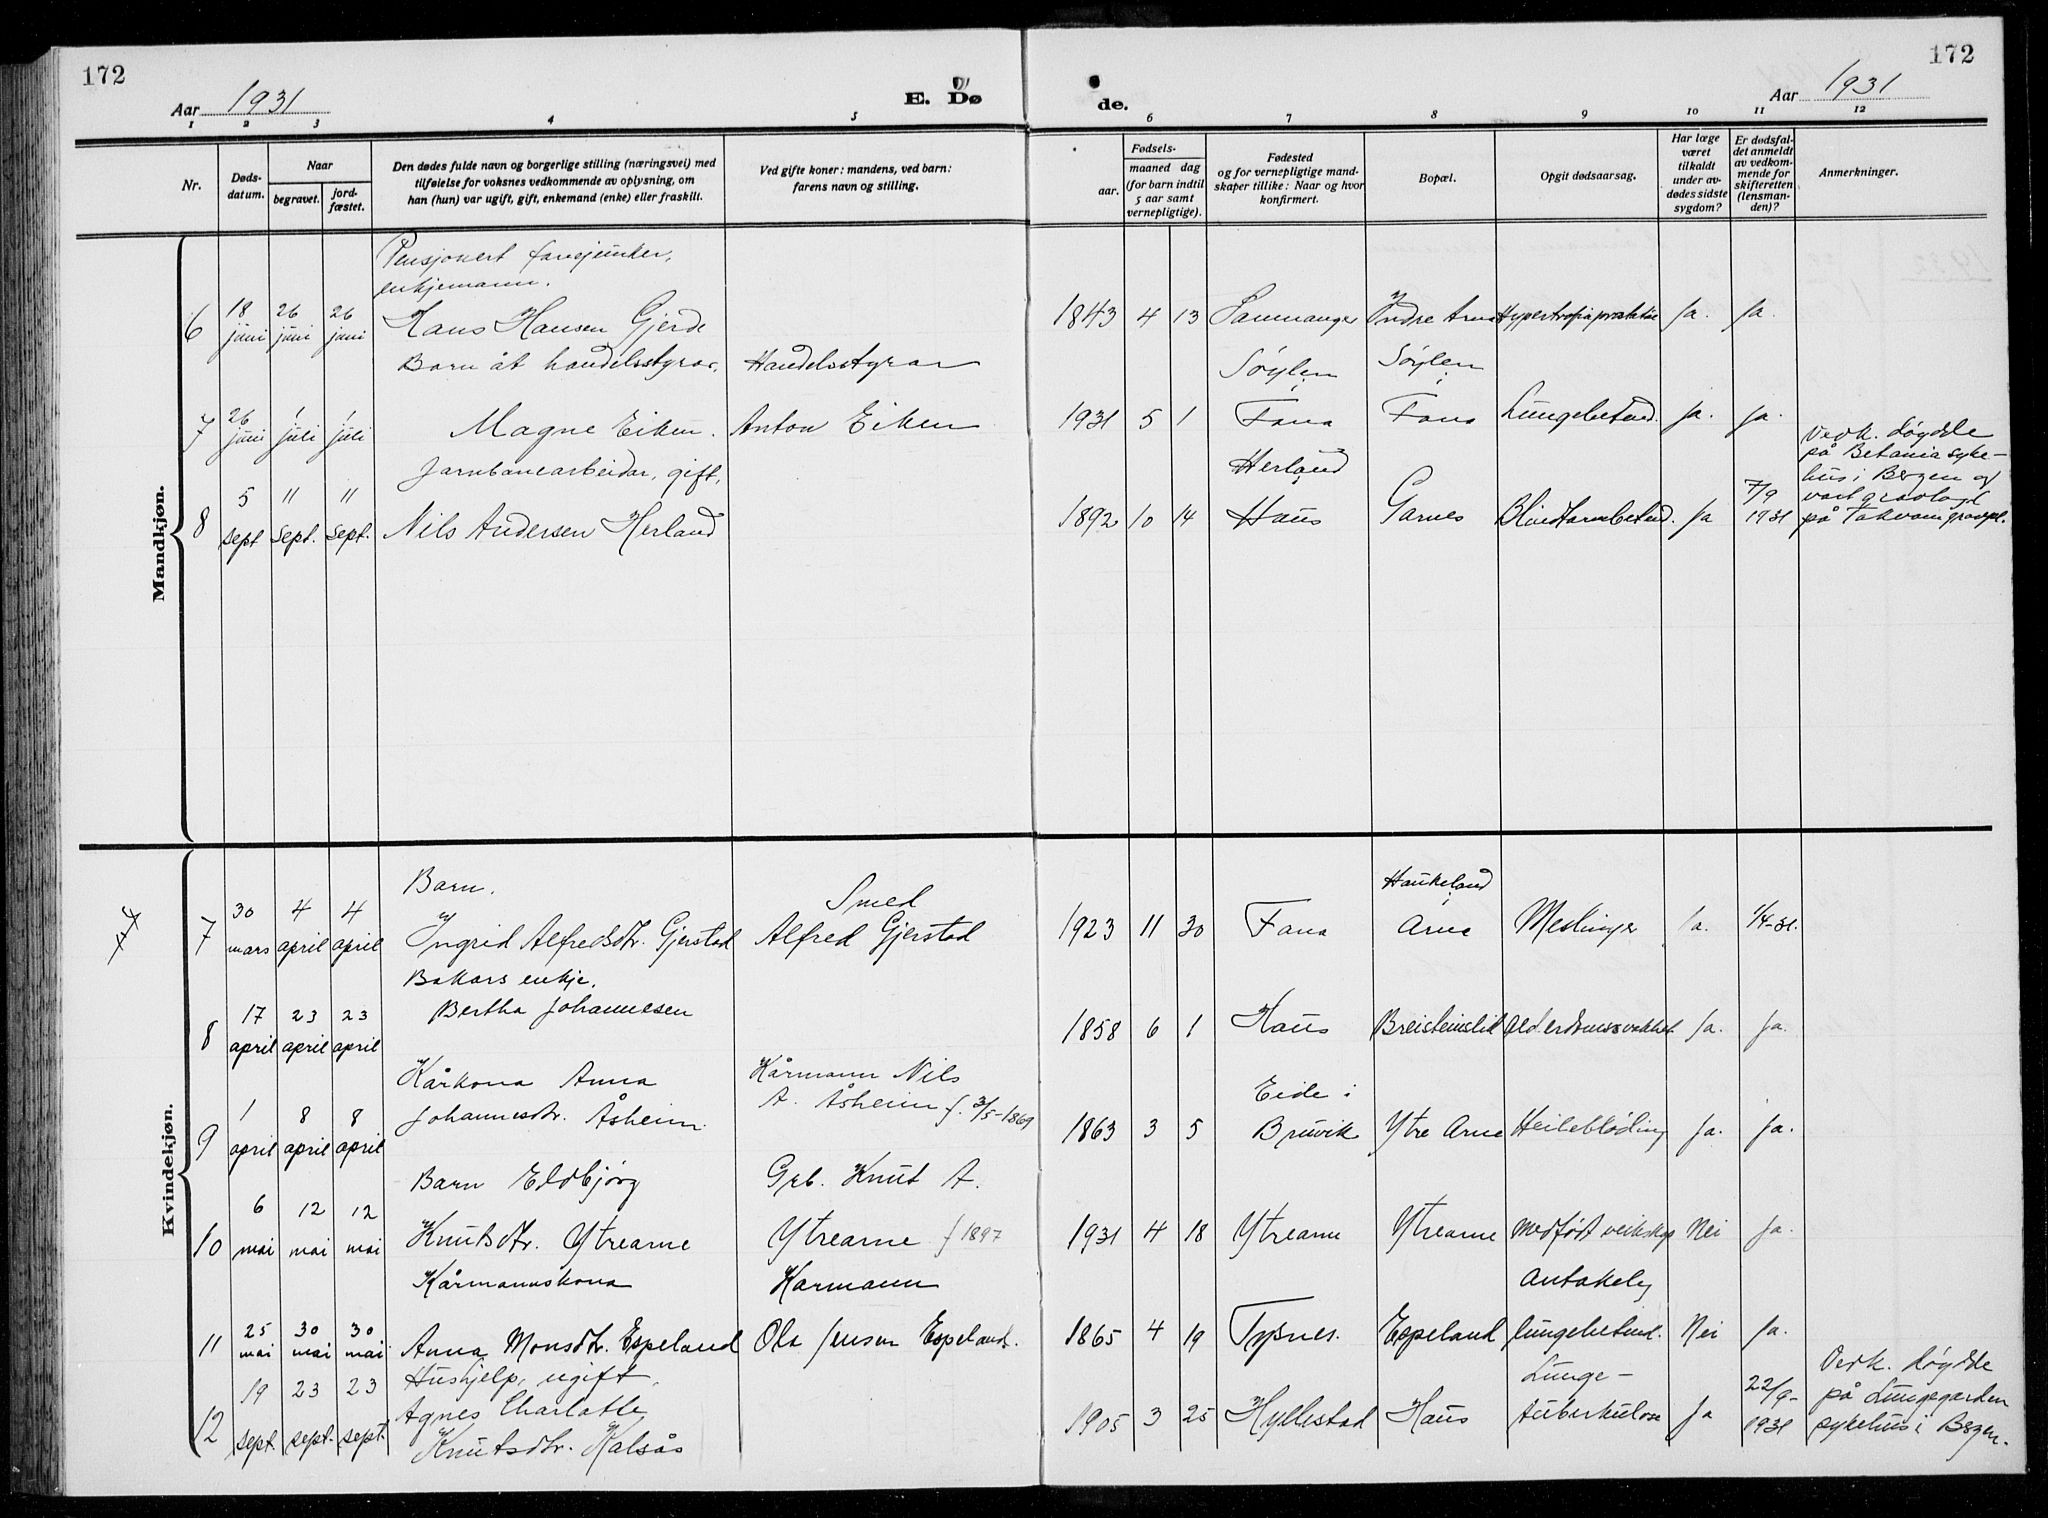 172
Aar 1931
E. Dø
de.
Aar 1931
172
1 2 3 4 5 6 7 8 9 10 11 12
Nr.
Døds-
datum.
Naar
begravet.
jord-
fæstet.
Den dødes fulde navn og borgerlige stilling (næringsvei) med
tilføielse for voksnes vedkommende av oplysning, om
han (hun) var ugift, gift, enkemand (enke) eller fraskilt.
Ved gifte koner: mandens, ved barn:
farens navn og stilling.
Fødsels-
aar.
maaned dag
(for barn indtil
5 aar samt
vernepligtige).
Fødested
og for vernepligtige mand-
skaper tillike: Naar og hvor
konfirmert.
Bopæl.
Opgit dødsaarsag.
Har læge
været
tilkaldt
under av-
dødes sidste
sygdom?
Er dødsfal-
det anmeldt
av vedkom-
mende for
skifteretten
(lensman-
den)?
Anmerkninger.
Mandkjøn.
Pensjonert fanejunker,
enkjemann.
6 18 juni 26 juni 26 juni Hans Hansen Gjerde 1843 4 13 Samnanger Indre Arna Hypertrofia prostatae Ja. Ja.
Barn åt handelsstyrar, Handelsstyrar Søylen i Søylen i
7 26 juni 1 juli 1 juli Magne Eiken. Anton Eiken 1931 5 1 Fana Fana Lungebetend. Ja. Ja.
Jarnbanearbeidar, gift, Herland i
8 5 sept 11 sept. 11 sept. Nils Andersen Herland 1892 10 14 Haus Garnes Blindtarmbetend. Ja 7/9 1931
Vedk. døydde
på Betania syke-
hus i Bergen og
vart gravlagt
på Takvam gravpl.
Kvindekjøn.
Barn. Smed Haukeland i
7 30 mars 4 april 4 april Ingrid Alfredsdtr. Gjerstad Alfred Gjerstad 1923 11 30 Fana Arna Meslinger Ja. 1/4-31.
Bakars enkje.
8 17 april 23 april 23 april Bertha Johannesen 1858 6 1 Haus Breisteinslid Alderdomssvakhet Ja. Ja.
Kårkona Anna Kårmann Nils Eide i
9 1 april 8 april 8 april Johannesdtr. Åsheim. A. Åsheim f. 3/5-1869 1863 3 5 Bruvik Ytre Arna Heilebløding Ja. Ja.
Barn Eldbjørg Grb. Knut A.
10 6 mai 12 mai 12 mai Knutsdtr. Ytrearne Ytrearne f 1897 1931 4 18 Ytrearne Ytrearne Medfødt veikskap Nei Ja.
Kårmannskona Karmann Antakeleg
11 25 mai 30 mai 30 mai Anna Monsdtr. Espeland Ola Jensen Espeland. 1865 4 19 Tysnes. Espeland lungebetend. Nei Ja.
Hushjelp, ugift, Lunge-
12 19 sept. 23 sept. 23 sept. Agnes Charlotte 1905 3 25 Hyllestad Haus tuberkulose Ja 22/9-1931
Knutsdtr. Kalsås
Vedk. døydde
på Lungegarden
sykehus i Bergen.